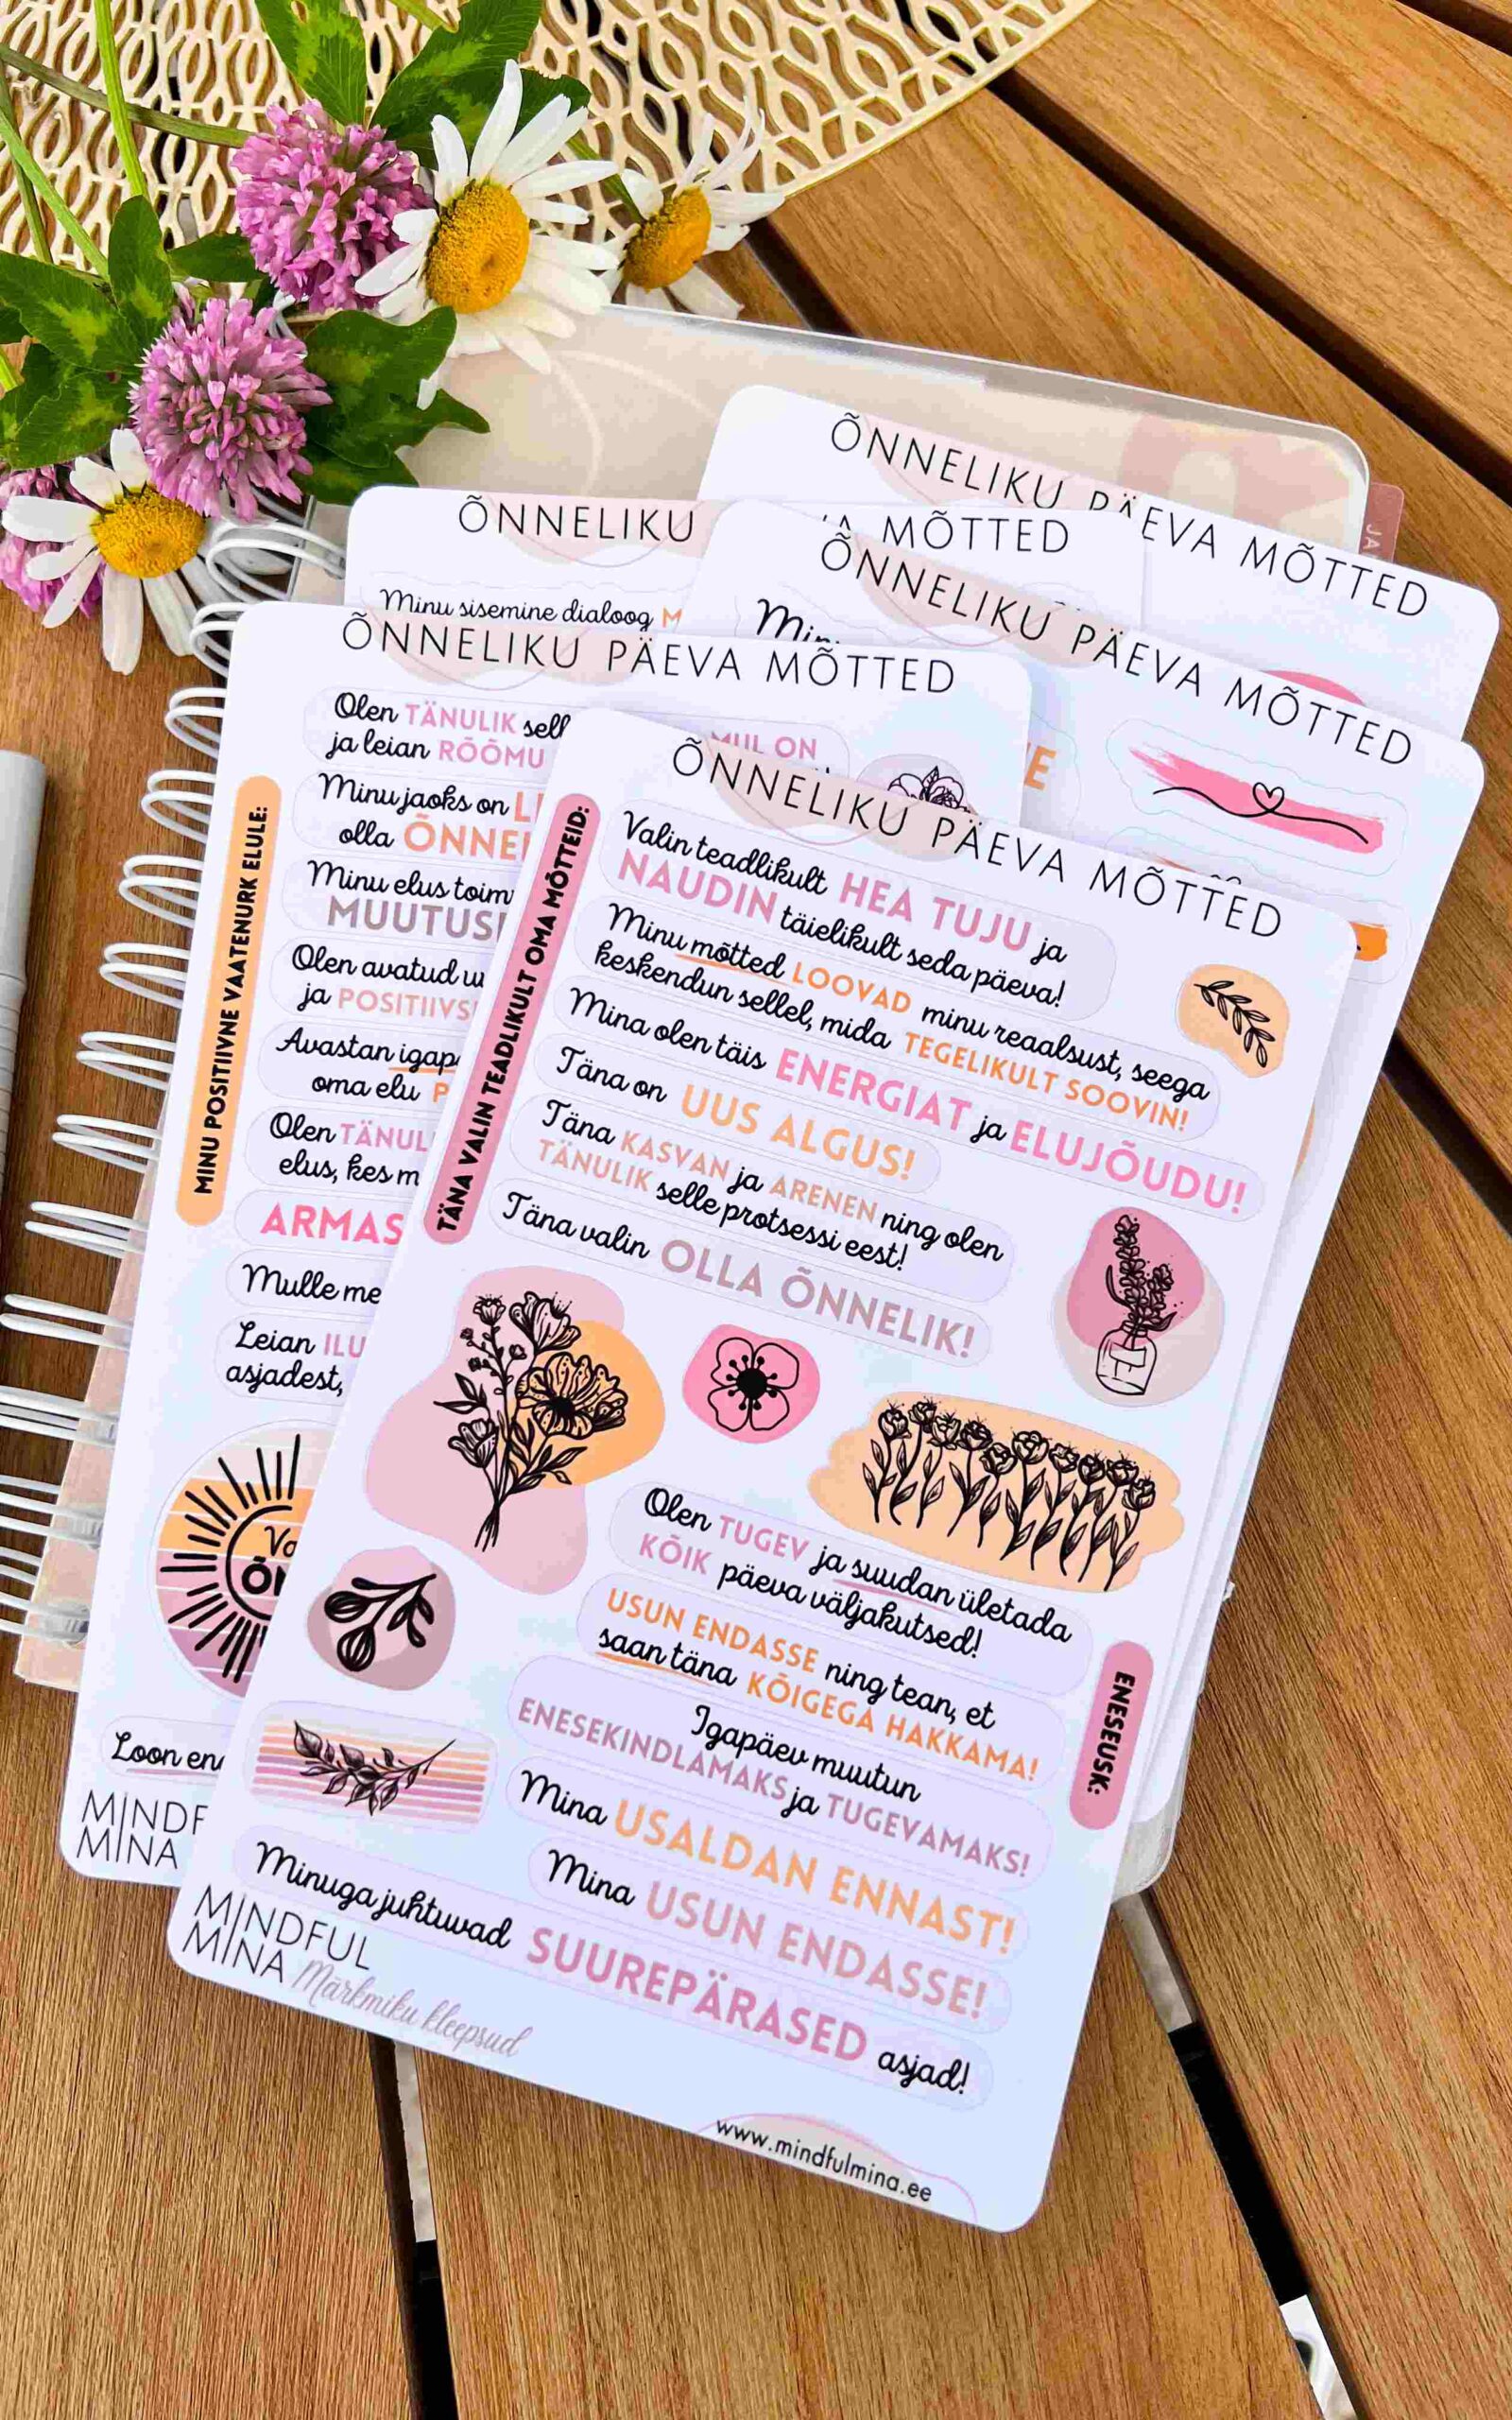 ÕNNELIKU PÄEVA MÕTTED
JA
ÕNNELIKU
MÕTTED
Minu sisemine dialoog M
ÕNNELIKU PÄEVA MÕTTED
E
ÕNNELIKU PÄEVA MÕTTED
Olen TÄNULIK sell
ja leian RÕÕMU
MUL ON
Minu jaoks on L
olla ÕNNE
Minu elus toim
MUUTUS
Olen avatud u
ja POSITIIVS
Avastan igap
oma elu P
Olen TÄNUL
elus, kes m
ARMAS
Mulle me
Leian ILU
asjadest,
MINU POSITIIVNE VAATENURK ELULE:
Va
ÕN
Loon en
MINDF
MINA
ÕNNELIKU PÄEVA MÕTTED
TÄNA VALIN TEADLIKULT OMA MÕTTEID:
Valin teadlikult HEA TUJU ja
NAUDIN täielikult seda päeva!
Minu mõtted LOOVAD minu reaalsust, seega
keskendun sellel, mida TEGELIKULT SOOVIN!
Mina olen täis ENERGIAT ja ELUJÕUDU!
Täna on UUS ALGUS!
Täna KASVAN ja ARENEN ning olen
TÄNULIK selle protsessi eest!
Täna valin OLLA ÕNNELIK!
Olen TUGEV ja suudan ületada
KÕIK päeva väljakutsed!
USUN ENDASSE ning tean, et
saan täna KÕIGEGA HAKKAMA!
Igapäev muutun
ENESEKINDLAMAKS ja TUGEVAMAKS!
Mina USALDAN ENNAST!
Mina USUN ENDASSE!
Minuga juhtuvad SUUREPÄRASED asjad!
ENESEUSK:
MINDFUL
MINA Märkmiku kleepsud
www.mindfulmina.ee